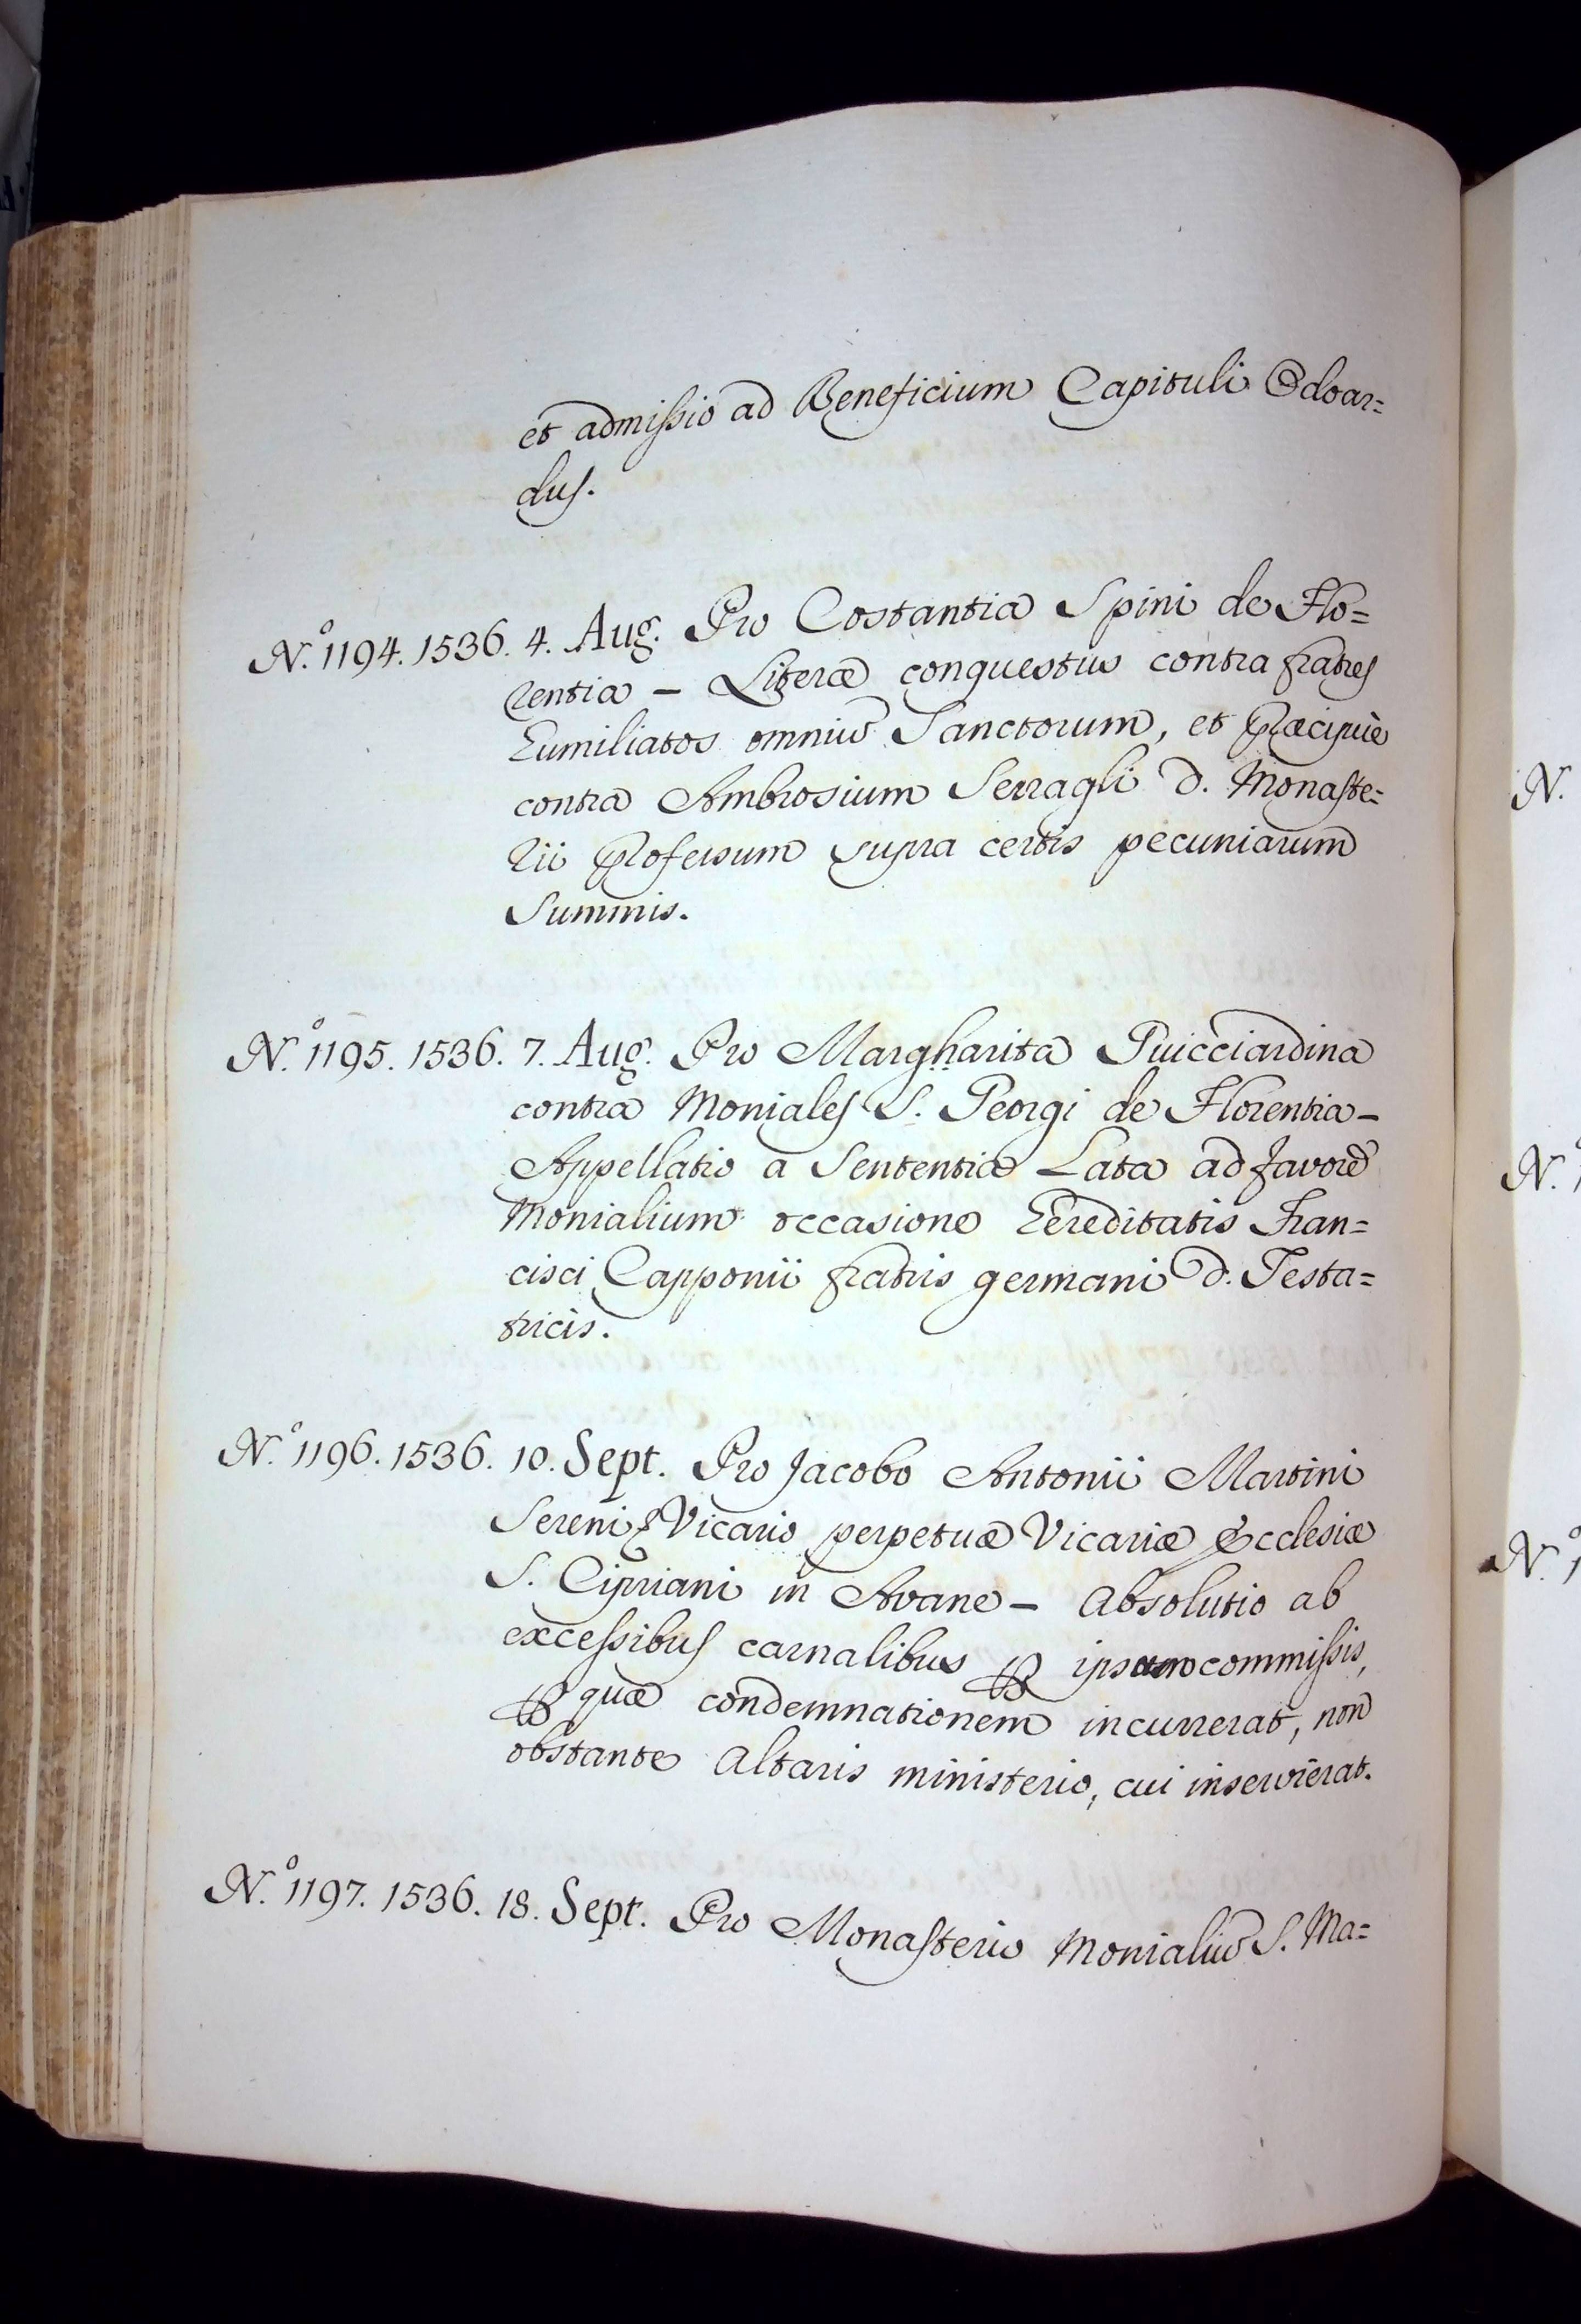 et admissio ad Beneficium Capituli Odoar=
dus.
N.º 1194. 1536. 4. Aug. Pro Costantia Spini de Flo=
rentia - Literæ conquestus contra fratres
Humiliatos omniũ Sanctorum, et Præcipuè
contra Ambrosium Serragli d. Monaste=
rii Professum supra certis pecuniarum
Summis.
N.º 1195. 1536. 7. Aug. Pro Margharita Guicciardina
contra Moniales S. Georgi de Florentia -
Appellatio a Sententia Lata ad favorẽ
Monialium occasione Hereditatis Fran=
cisci Capponii fratris germani d. Testa=
tricis.
N.º 1196. 1536. 10. Sept. Pro Jacobo Antonii Martini
Sereni Vicario perpetuæ Vicariæ Ecclesiæ
S. Cipriani in Avane - Absolutio ab
excessibus carnalibus ꝑ ipsum commissis,
ꝑ quæ condemnationem incurrerat, non
obstante Altaris ministerio, cui inservierat.
N.º 1197. 1536. 18. Sept. Pro Monasterio Monialiũ S. Ma=
N.
N.º
N.º